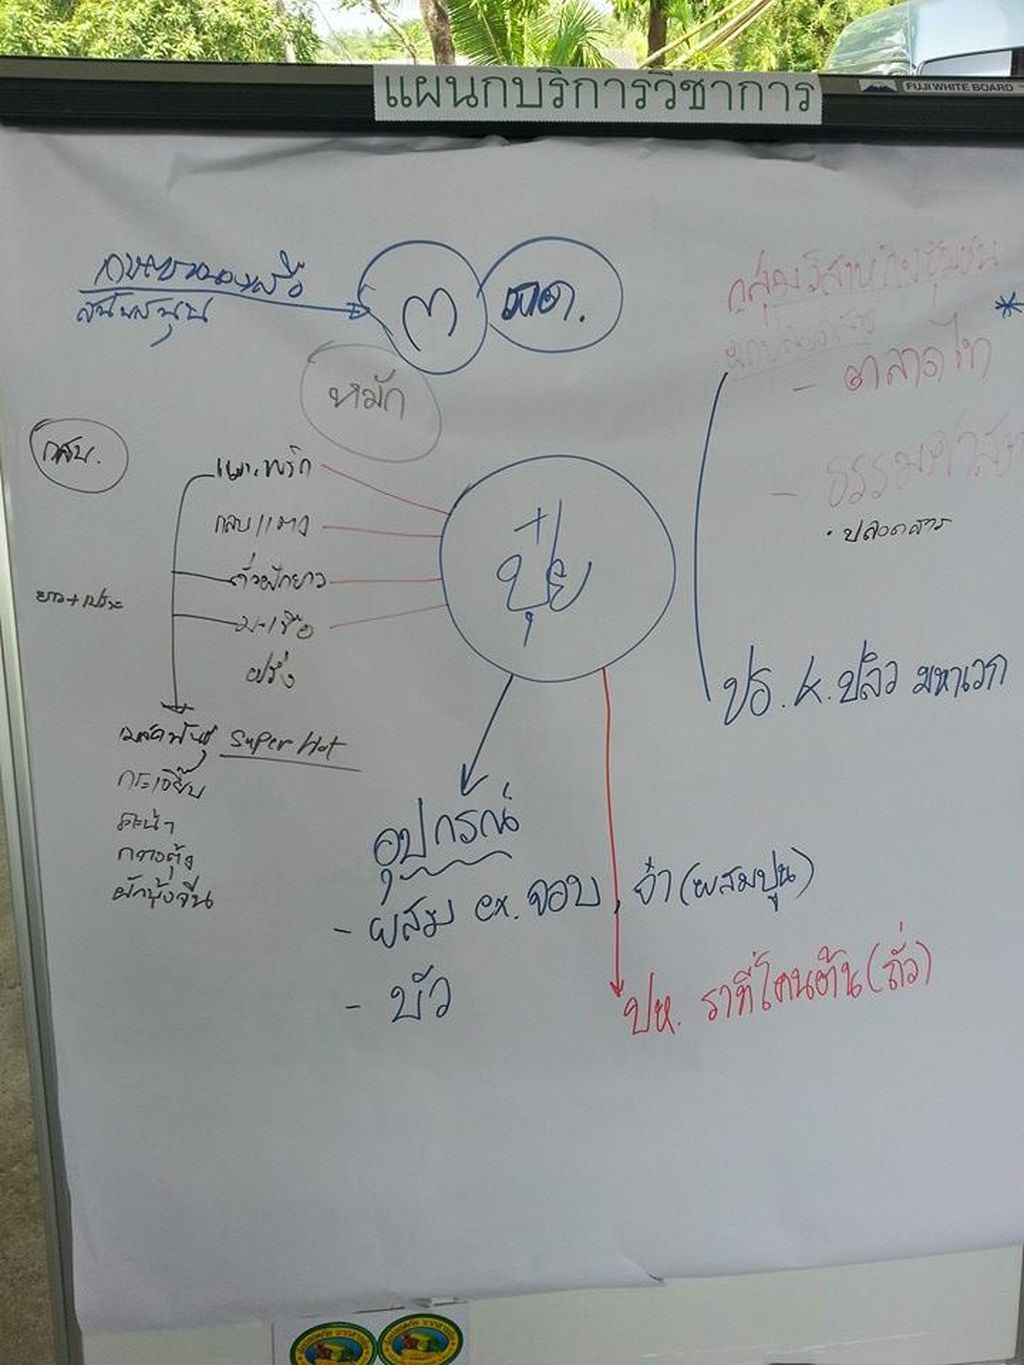 แผนกบริการวิชาการ
FUJI WHITE BOARD
สนับสนุน
๓
หมัก
กลุ่มวิสาหกิจชุมชน
- ตลาดไท
- ธรรมศาสตร์
• ปลอดสาร
กสบ.
เพาะพริก
แตง
ถั่วฝักยาว
มะเขือ
ฝรั่ง
ยาว + เปราะ
ปุ๋ย
ปธ. k. ปลิว มหาเวก
เมล็ดพันธุ์ Super Hot
กระเจี๊ยบ
คะน้า
กวางตุ้ง
ผักบุ้งจีน
อุปกรณ์
- ผสม ex. จอบ, (ผสมปูน)
- บัว
ปห. ราที่โคนต้น (ถั่ว)